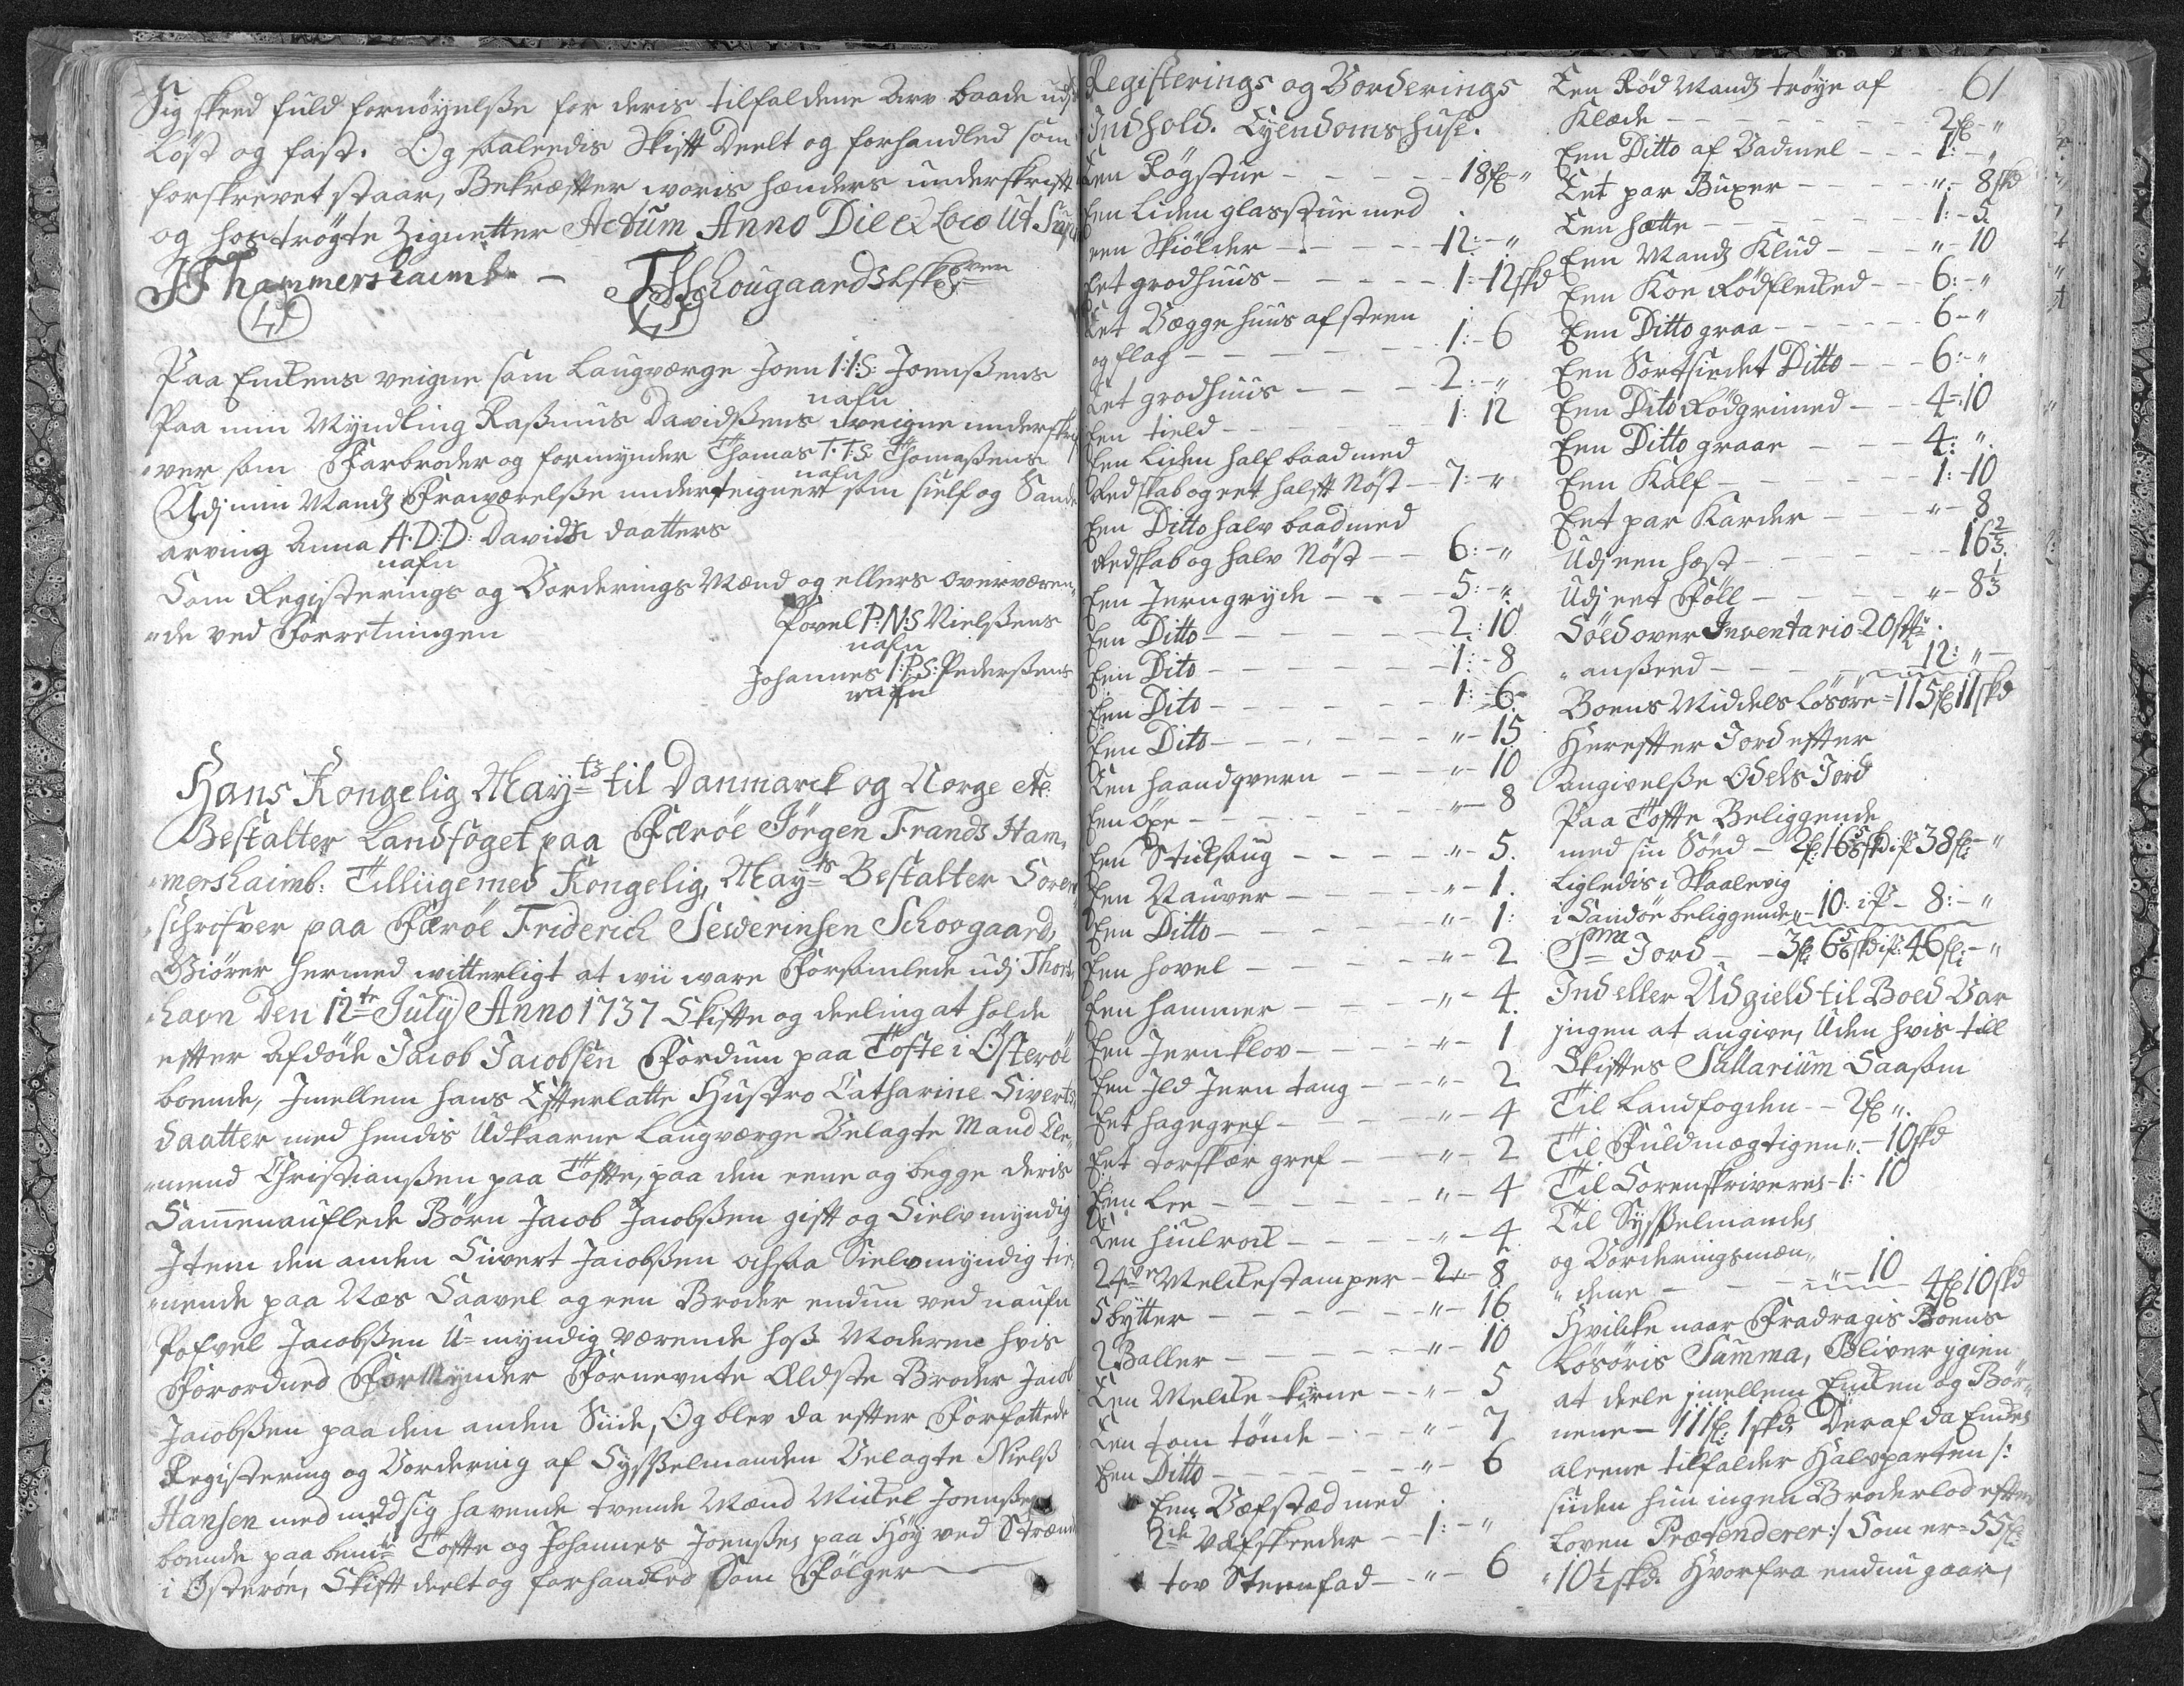 Sig skeed fuld fornöyelße for deris tilfaldene Arv baade udj
Löst og fast. Og saaleedis Skift Deelt og forhandled som
forskrevet staar, Bekræfter woris hænders underskrift
og hoströgte Zignetter Actum Anno Die et Loco Ut Supra
JF hammershaimb - FS Schougaard SLskr
LS LS
Paa Enkens veigne som Laugværge Joen I:I:S: Joenßens
nafn
Paa min Myndling Raßmus Davidßens veigne underskri
"ver som Farbroder og formynder Thomas T.T:S Thomaßens
nafn
Udj min Mands Fraværelße underteignet som sielf og Sande
arving Anna A.D:D: Davids daatters
nafn
Som Registerings og Vorderings Mænd og ellers overværen,
"de ved Forretningen Povel P:N:S Nielßens
nafn
Johannes I:P:S: Pederßens
nafn
Hans Kongelig Mayts til Danmarck og Norge etc.
Bestalter Landfoget paa Færöe Jörgen Frands Ham,
"mershaimb: Tilliige med Kongelig, Mayts Bestalter Soren
"schrifver paa Færöe Friderich Sewerinsen Schovgaard,
Giörer hermed witterligt at wii ware Forsamlede udj Thors,
"havn Den 12te July Anno 1737 Skifte og deeling at holde
efter Afdöde Jacob Jacobsen Fordum paa Tofte i Österöe
boende, Jmellem hans Efterlatte Hustro Catharine Siverts,
daatter med hendis Udkaarne Laugværge Velagte Mand Cle,
"mend Christianßen paa Tofte, paa den eene og begge deris
Sammenauflede Börn Jacob Jacobßen gift og Sielvmyndig
Jtem den anden Sivert Jacobßen ochsaa Sielvmyndig tie,
"nende paa Næs Saavel og een Broder endnu ved naufn
Pofvel Jacobßen U=myndig værende hoß Moderene hvis
Forordned ForMynder Fornevnte Eldste Broder Jacob
Jacobßen paa den anden Siide, Og blev da efter Forfattede
Registering og Vordering af Sysßelmanden Velagte Nielß
Hansen med med sig havende tvende Mænd Mickel Joenßen
boende paa bemte Tofte og Johannes Joenßen paa Höy ved Strænd
i Österöe, Skift deelt og forhandled Som Fölger
Registerings og Vorderings
Jndhold. Eyendoms huse.
Een Rögstue - - - - 18fl "
Een Liden glasstue med
een Skiölder - - - - 12:-"
Eet grodhuus - - - - 1:-12skd
Eet Veggehuus af steen
og flag - - - - 1:-6
Eet grodhuus - - - 2:-"
Een tield - - - - 1:12
Een Liden half baad med
Redskab og eet halft Nöst - 7:-"
Een Ditto halv baad med
Redskab og halv Nöst - - 6:-"
Een Jerngryde - - - 5:-"
Een Ditto - - - - 2:10
Een Dito - - - - 1:-8
Een Dito - - - - 1:-6
Een Dito - - - - "-15
Een haandqvern - - - "-10
Een öxe - - - - "-8
Een Sticksaug - - - - "-5.
Een Nauver - - - - "-1.
Een Ditto - - - - "-1:
Een hovel - - - - "-2
Een hammer - - - - "-4.
Een Jernklov - - - - "-1
Een Jld Jern tang - - - "-2
Eet hagegref - - - - "-4
Eet torskær gref - - - "-2
Een Lee - - - - "-4
Een hiulrock - - - - "-4.
24re Melckestamper - 2-8
5 bytter - - - - "-16
2 Baller - - - - "-10
Een Melcke-kierne - - "-5
Een tom tönde - - - "-7
Een Ditto - - - - "-6
Een Vefstæd med
2de Væfskeeder - - 1:-"
tov Steenfad - - "-6
61
Een Röd Mands tröye af
Klæde - - - - 2fl-"
Een Ditto af Vadmel - - 1:-"
Eet par Buxer - - - "-8skd
Een hætte - - - - 1:-5
Een Mands Klud - - - "-10
Een Koe Rödflecked - - 6:-"
Een Ditto graa - - - 6-"
Een Sortsiedet Ditto - - 6:-"
Een Dito Rödgrimed - - 4-:10
Een Ditto graae - - - 4:-".
Een Kalf - - - - 1:-10
Eet par Karder - - - "-8
Udj een hest - - - 16 2/3.
Udj eet Föll - - - - "-8 1/3
Söed over Inventario 20stk
"anßeed - - - - 12:"-
Boens Middels Lösöre=115fl 11skd
Herefter Jord efter
Angivelße Odels Jord
Paa Tofte Beliggende
med sin Söed - 2fl:16 5/8skd:ist 38fl:-"
Ligledis i Skaalevig
i Sandöe beliggende "-10: ist-8:-"
Sma Jord - - 3fl:6 5/8skd ist:46fl:-"
Jnd eller Udgield til Boed Var
jngen at angive, Uden hvis till
Skiftes Sallarium Saasom
Til Landfogden - - 2fl ".
Til Fuldmægtigen ".-10skd
Til Sorenskriveren-1:-10
Til Sysßelmanden
og Vorderingsmæn,
"dene - - - - "-10 4fl 10skd
Hvilcke naar Fradragis Boens
Lösöris Summa, Bliver jgien
at deele jmellem Encken og Bör,
nene - 111fl: 1skd Deraf da Encken
aleene tilfalder Halvparten /:
siden hun ingen Broderlod efter
Loven Prætenderer:/ Som er - 55fl:
"10½skd. Hvorfra endnu gaar,